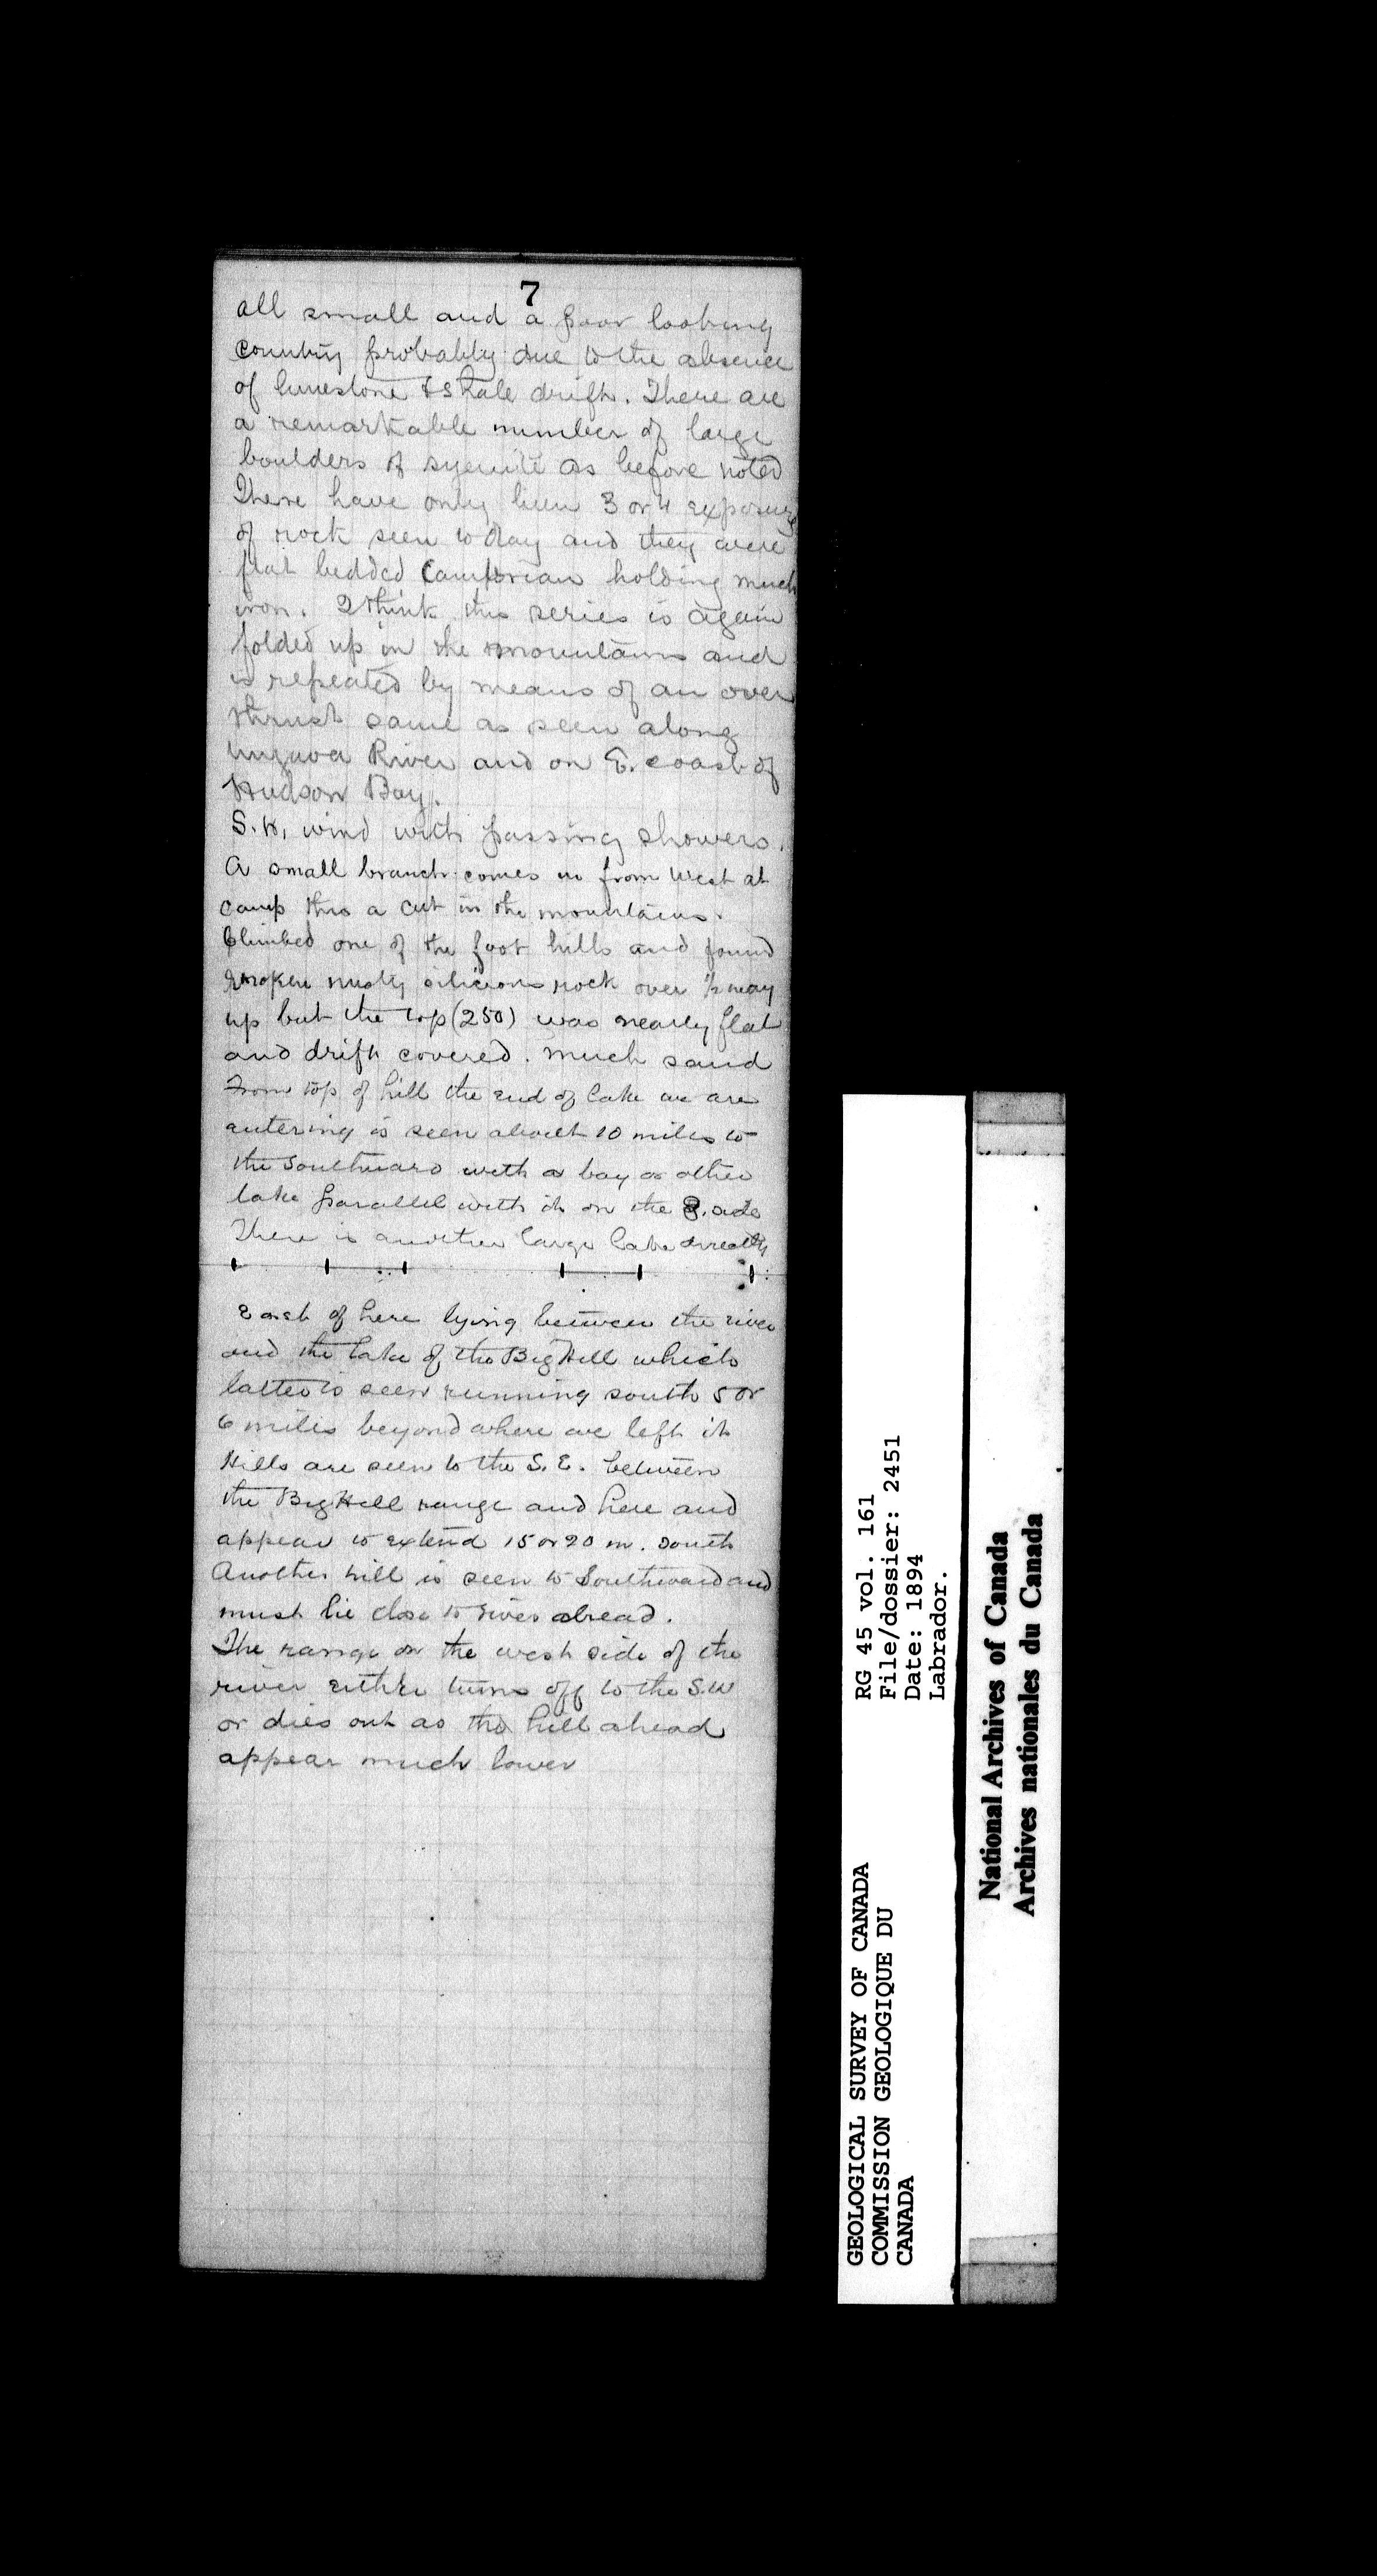 7
all small and a poor looking
country probably due to the absence
of limestone & shale drift. There are
a remarkable number of large
boulders of syenite as before noted
There have only been 3 or 4 exposures
of rock seen to day and they were
flat bedded Cambrian holding much
iron. I think this series is again
folded up in the mountains and
is repeated by means of an over
thrust same as seen along
Ungava River and on E. coast of
Hudson Bay.
S.W. wind with passing showers.
A small branch comes in from West at
camp thro a cut in the mountains.
Climbed one of the foot hills and found
broken rusty silicious rock over ½ way
up but the top (250) was nearly flat
and drift covered. Much sand
From top of hill the end of lake we are
entering is seen about 10 miles to
the southward with a bay or other
lake parallel with it on the E. side
There is another large lake directly
East of here lying between the river
and the lake of the Big Hill which
latter is seen running south 5 or
6 miles beyond where we left it
Hills are seen to the S.E. between
the Big Hill range and here and
appear to extend 15 or 20 m. south
Another hill is seen to Southward and
must lie close to river ahead.
The range on the west side of the
river either turns off to the S.W
or dies out as the hill ahead
appear much lower
GEOLOGICAL SURVEY OF CANADA
COMMISSION GEOLOGIQUE DU
CANADA
RG 45 vol. 161
File/dossier: 2451
Date: 1894
Labrador.
National Archives of Canada
Archives nationales du Canada